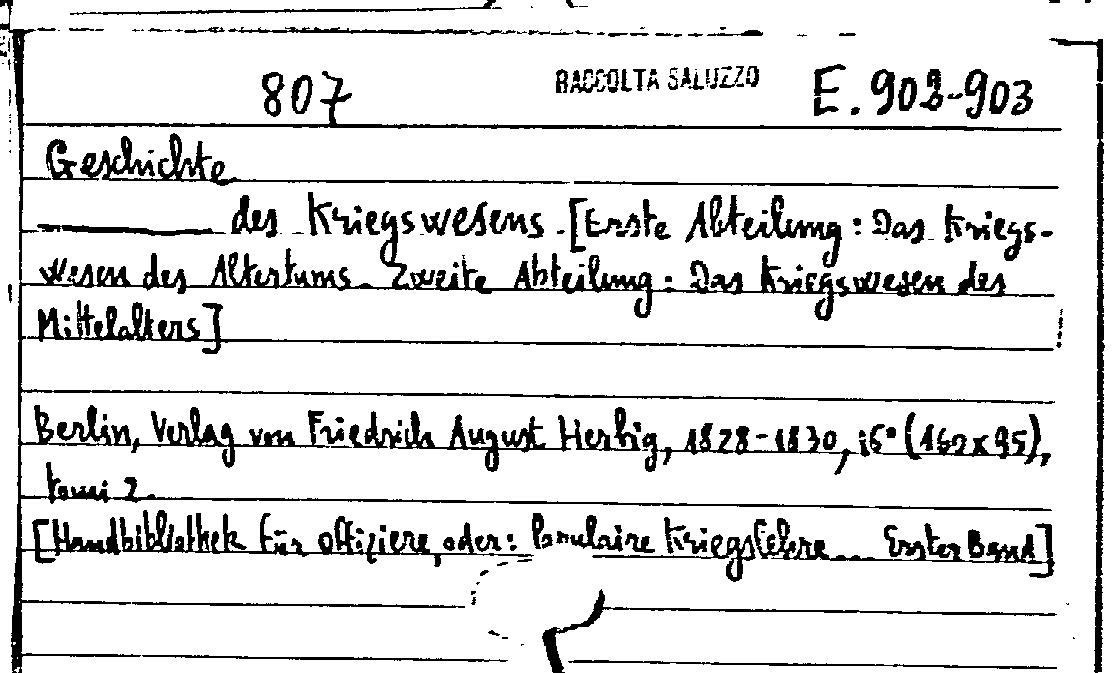 807 RACCOLTA SALUZZO E. 902-903
Geschichte
des Kriegswesens. [Erste Abteilung: Das Kriegs-
wesen des Altertums. Zweite Abteilung: Das Kriegswesen des
Mittelalters]
Berlin, Verlag von Friedrich August Herbig, 1828-1830, 16° (160x95),
tomi 2.
[Handbibliothek für Offiziere, oder: Populaire Kriegslehre... Erster Band]